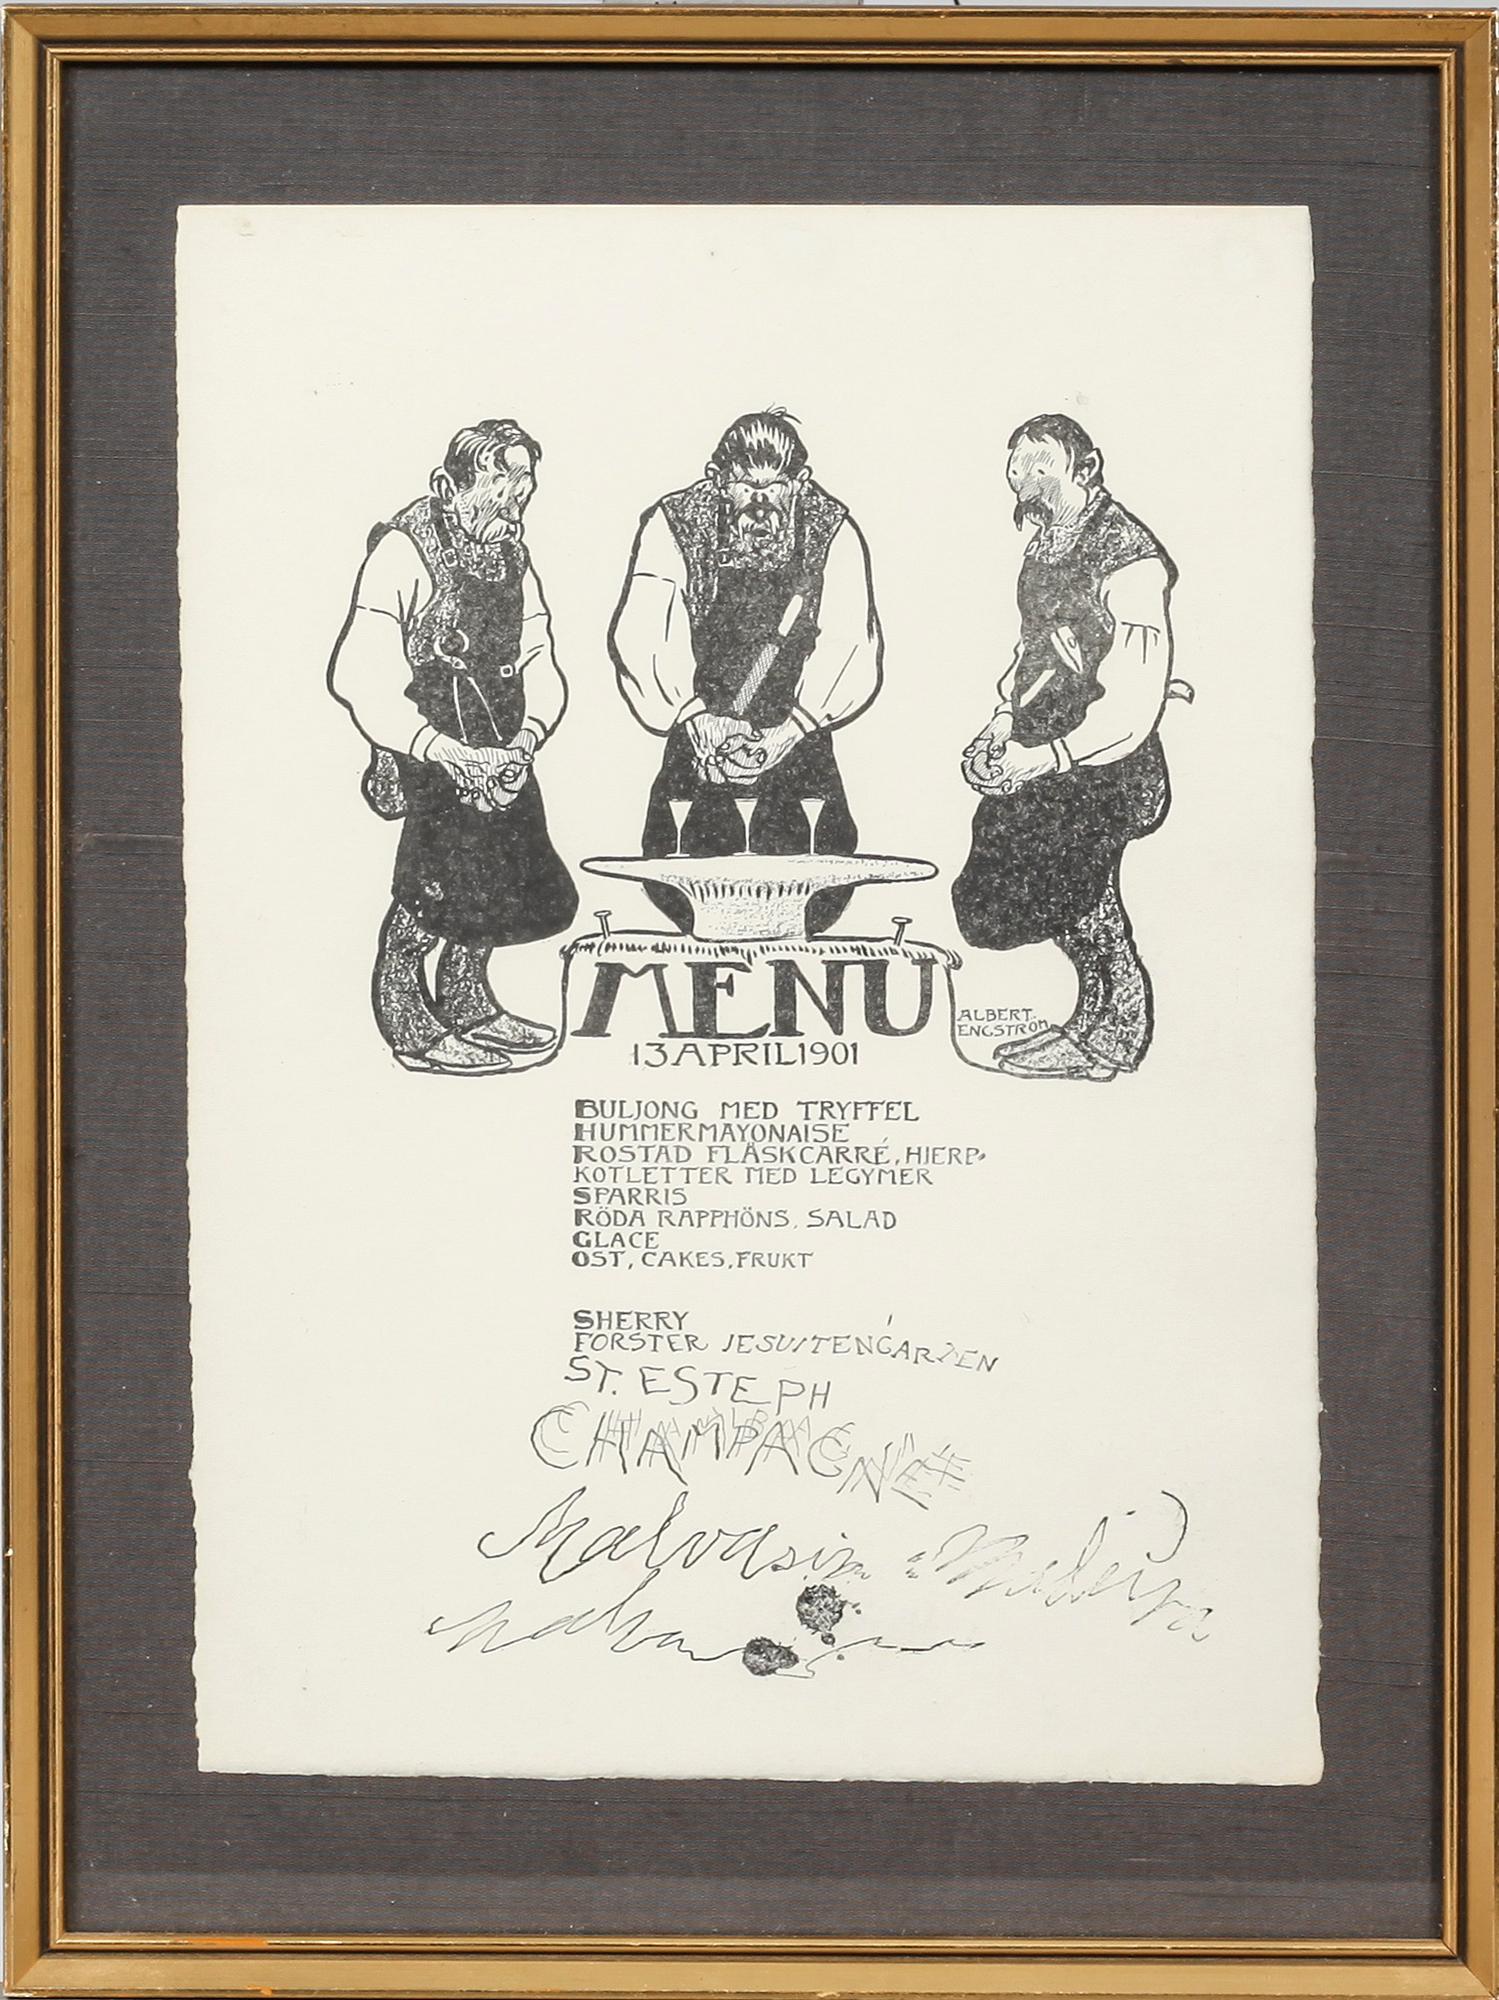 MENU
13 APRIL 1901
ALBERT
ENGSTRÖM
BULJONG MED TRYFFEL
HUMMERMAYONAISE
ROSTAD FLÄSKCARRÉ, HJERP-
KOTLETTER MED LEGYMER
SPARRIS
RÖDA RAPPHÖNS, SALAD
GLACE
OST, CAKES, FRUKT
SHERRY
FORSTER JESUITENGARTEN
ST. ESTEPH
CHAMPAGNE
Malvasir Madeira